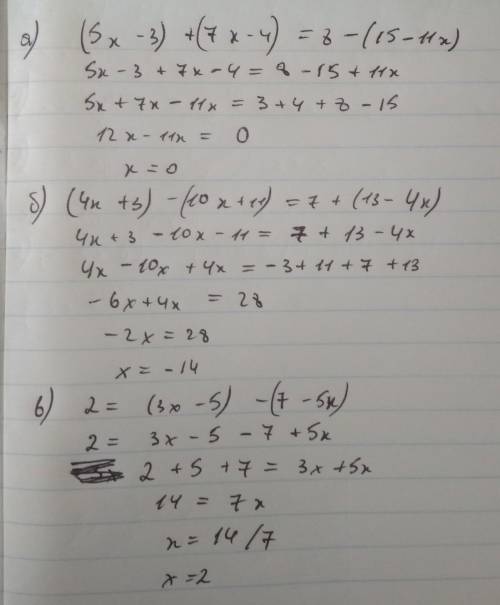 а) (5x - 3) + (7x - 4) = 8 - (15 - 11x)
5x - 3 + 7x - 4 = 8 - 15 + 11x
5x + 7x - 11x = 3 + 4 + 8 - 15
12x - 11x = 0
x = 0
б) (4x + 3) - (10x + 11) = 7 + (13 - 4x)
4x + 3 - 10x - 11 = 7 + 13 - 4x
4x - 10x + 4x = -3 + 11 + 7 + 13
-6x + 4x = 28
-2x = 28
x = -14
в) 2 = (3x - 5) - (7 - 5x)
2 = 3x - 5 - 7 + 5x
2 + 5 + 7 = 3x + 5x
14 = 7x
x = 14/7
x = 2